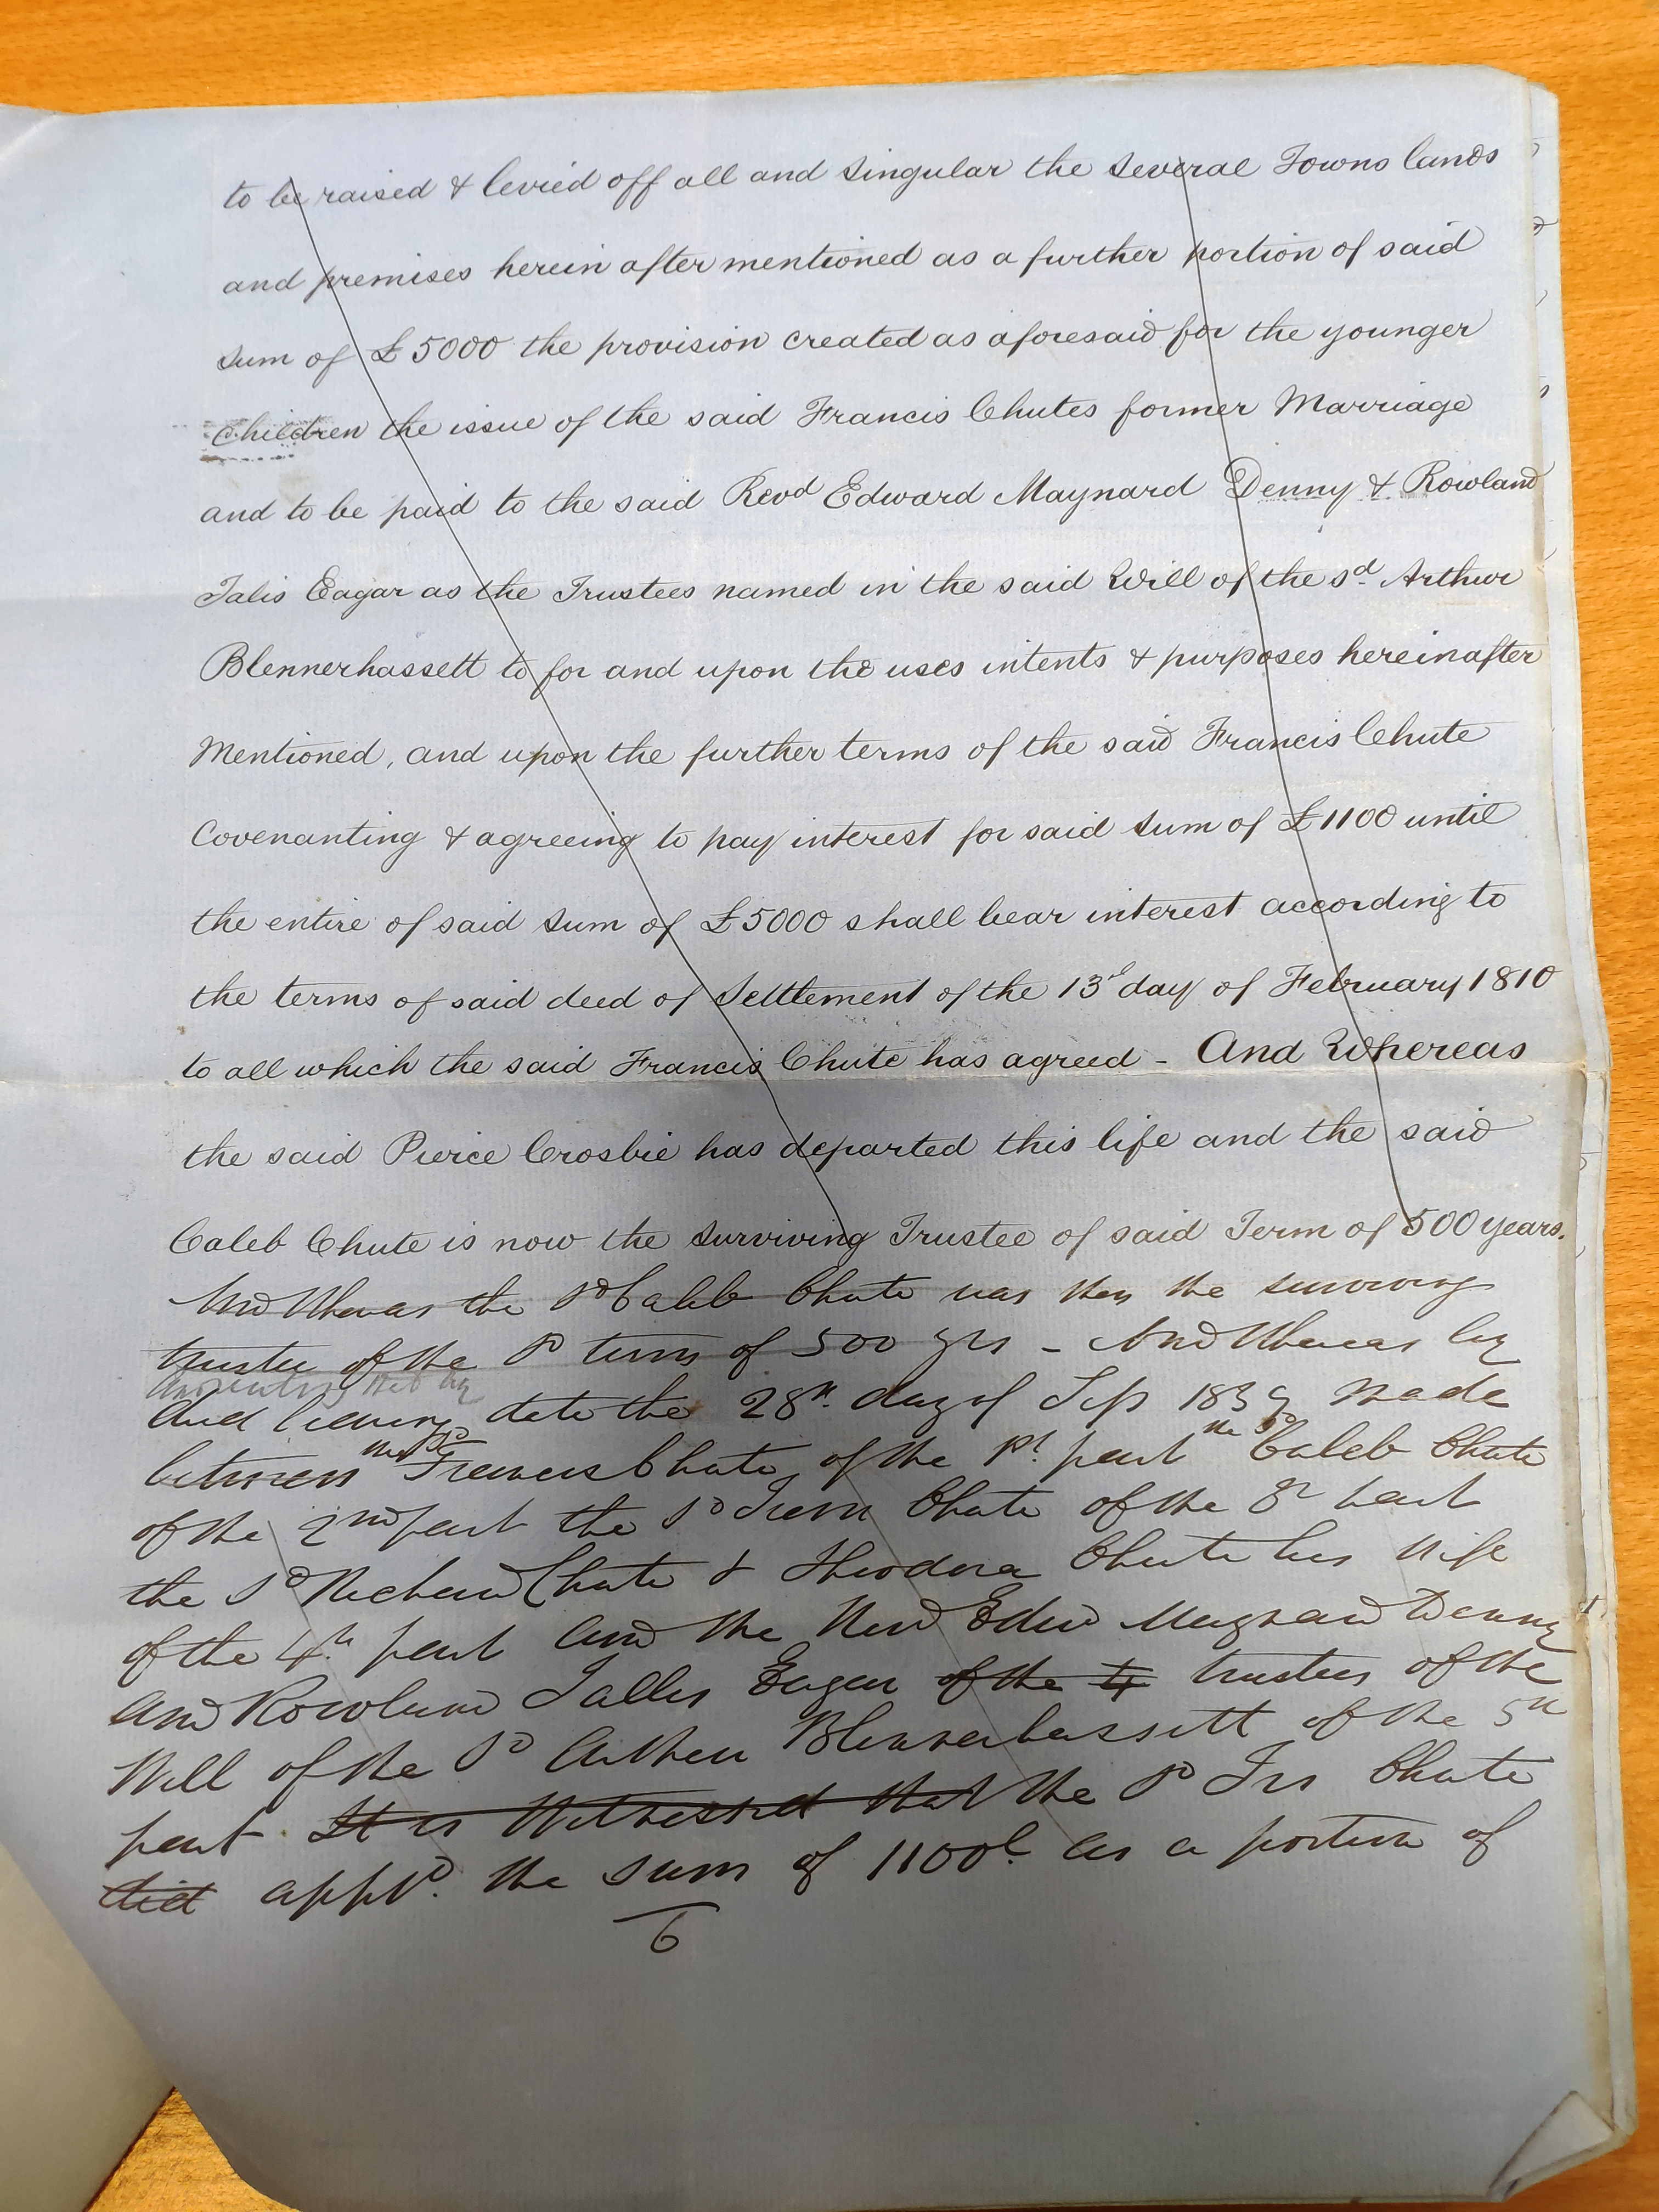 to be raised & levied off all and singular the several Towns lands
and premises herein after mentioned as a further portion of said
sum of £5000 the provision created as aforesaid for the younger
Children the issue of the said Francis Chutes former Marriage
and to be paid to the said Revd Edward Maynard Denny & Rowland
Talis Eagar as the Trustees named in the said Will of the sd Arthur
Blennerhassett to for and upon the uses intents & purposes hereinafter
Mentioned, and upon the further terms of the said Francis Chute
Covenanting & agreeing to pay interest for said sum of £1100 until
the entire of said sum of £5000 shall bear interest according to
the terms of said deed of Settlement of the 13d day of February 1810
to all which the said Francis Chute has agreed - And Whereas
the said Pierce Crosbie has departed this life and the said
Caleb Chute is now the surviving Trustee of said Term of 500 years.
And Whereas the sd Caleb Chute was then the surviving
trustee of the sd term of 500 yrs - And Whereas by
deed bearing date the 28th day of Sep 1839 made
between the sd Francis Chute of the 1st part the sd Caleb Chute
of the 2nd part the sd Chute of the 3r part
the sd Richard Chute & Theodora Chute his wife
of the 4th part and the Revd Edwd Maynard Denny
and Rowland Tallis Eagar of the 4 trustees of the
Will of the sd Arthur Blennerhassett of the 5th
part It is Witnessed that the sd Frs Chute
did appd. the sum of 1100l. as a portion of
6